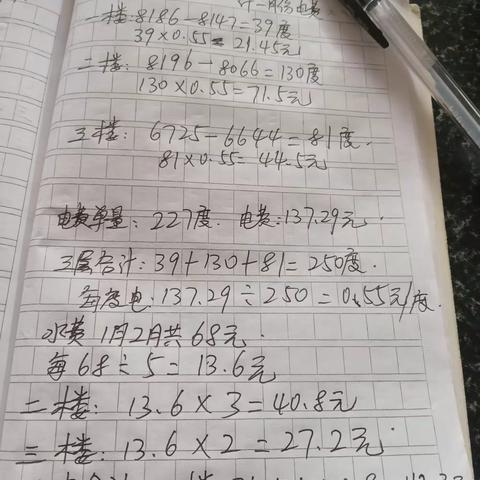 十一月份电费
一楼:8186-8147=39度
39×0.55=21.45元
二楼:8196-8066=130度
130×0.55=71.5元
三楼:6725-6644=81度.
81×0.55=44.5元
电表单量:227度.电费:137.29元.
三层合计:39+130+81=250度.
每度电:137.29÷250=0.55元/度.
水费1月2月共68元.
每68÷5=13.6元
二楼:13.6×3=40.8元
三楼:13.6×2=27.2元